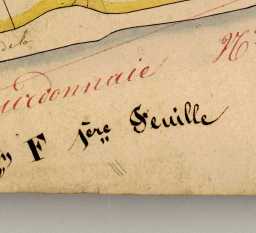 de la
urdonnaie N
on F 1ère Feuille